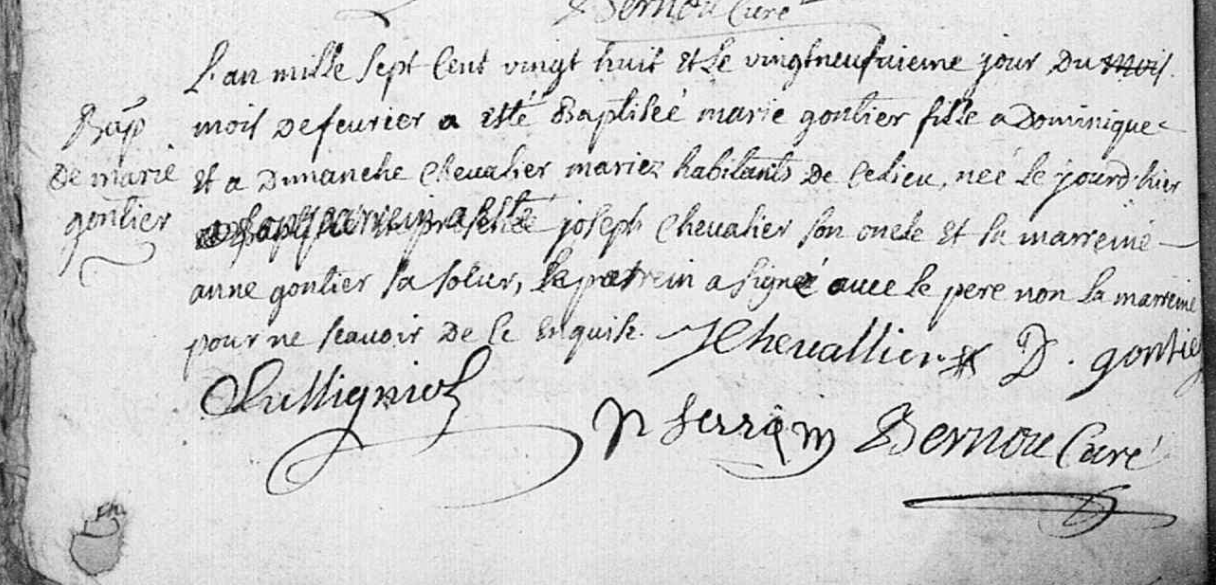 Bernou Curé
L'an mille sept cent vingt huit et le vingtneufuieme jour du mois
mois de feurier a esté Baptiseé marie gontier fille a Dominique
Bap
de marie
gontier
et a Dimanche Chevalier mariez habitants de ce lieu, neé le jourd'hier
joseph Chevalier son oncle et la marreine
anne gontier sa soeur, le parrein a signé auec le pere non la marreine
pour ne scauoir de ce enquise. JChevallier D. gontier
Bernou Curé